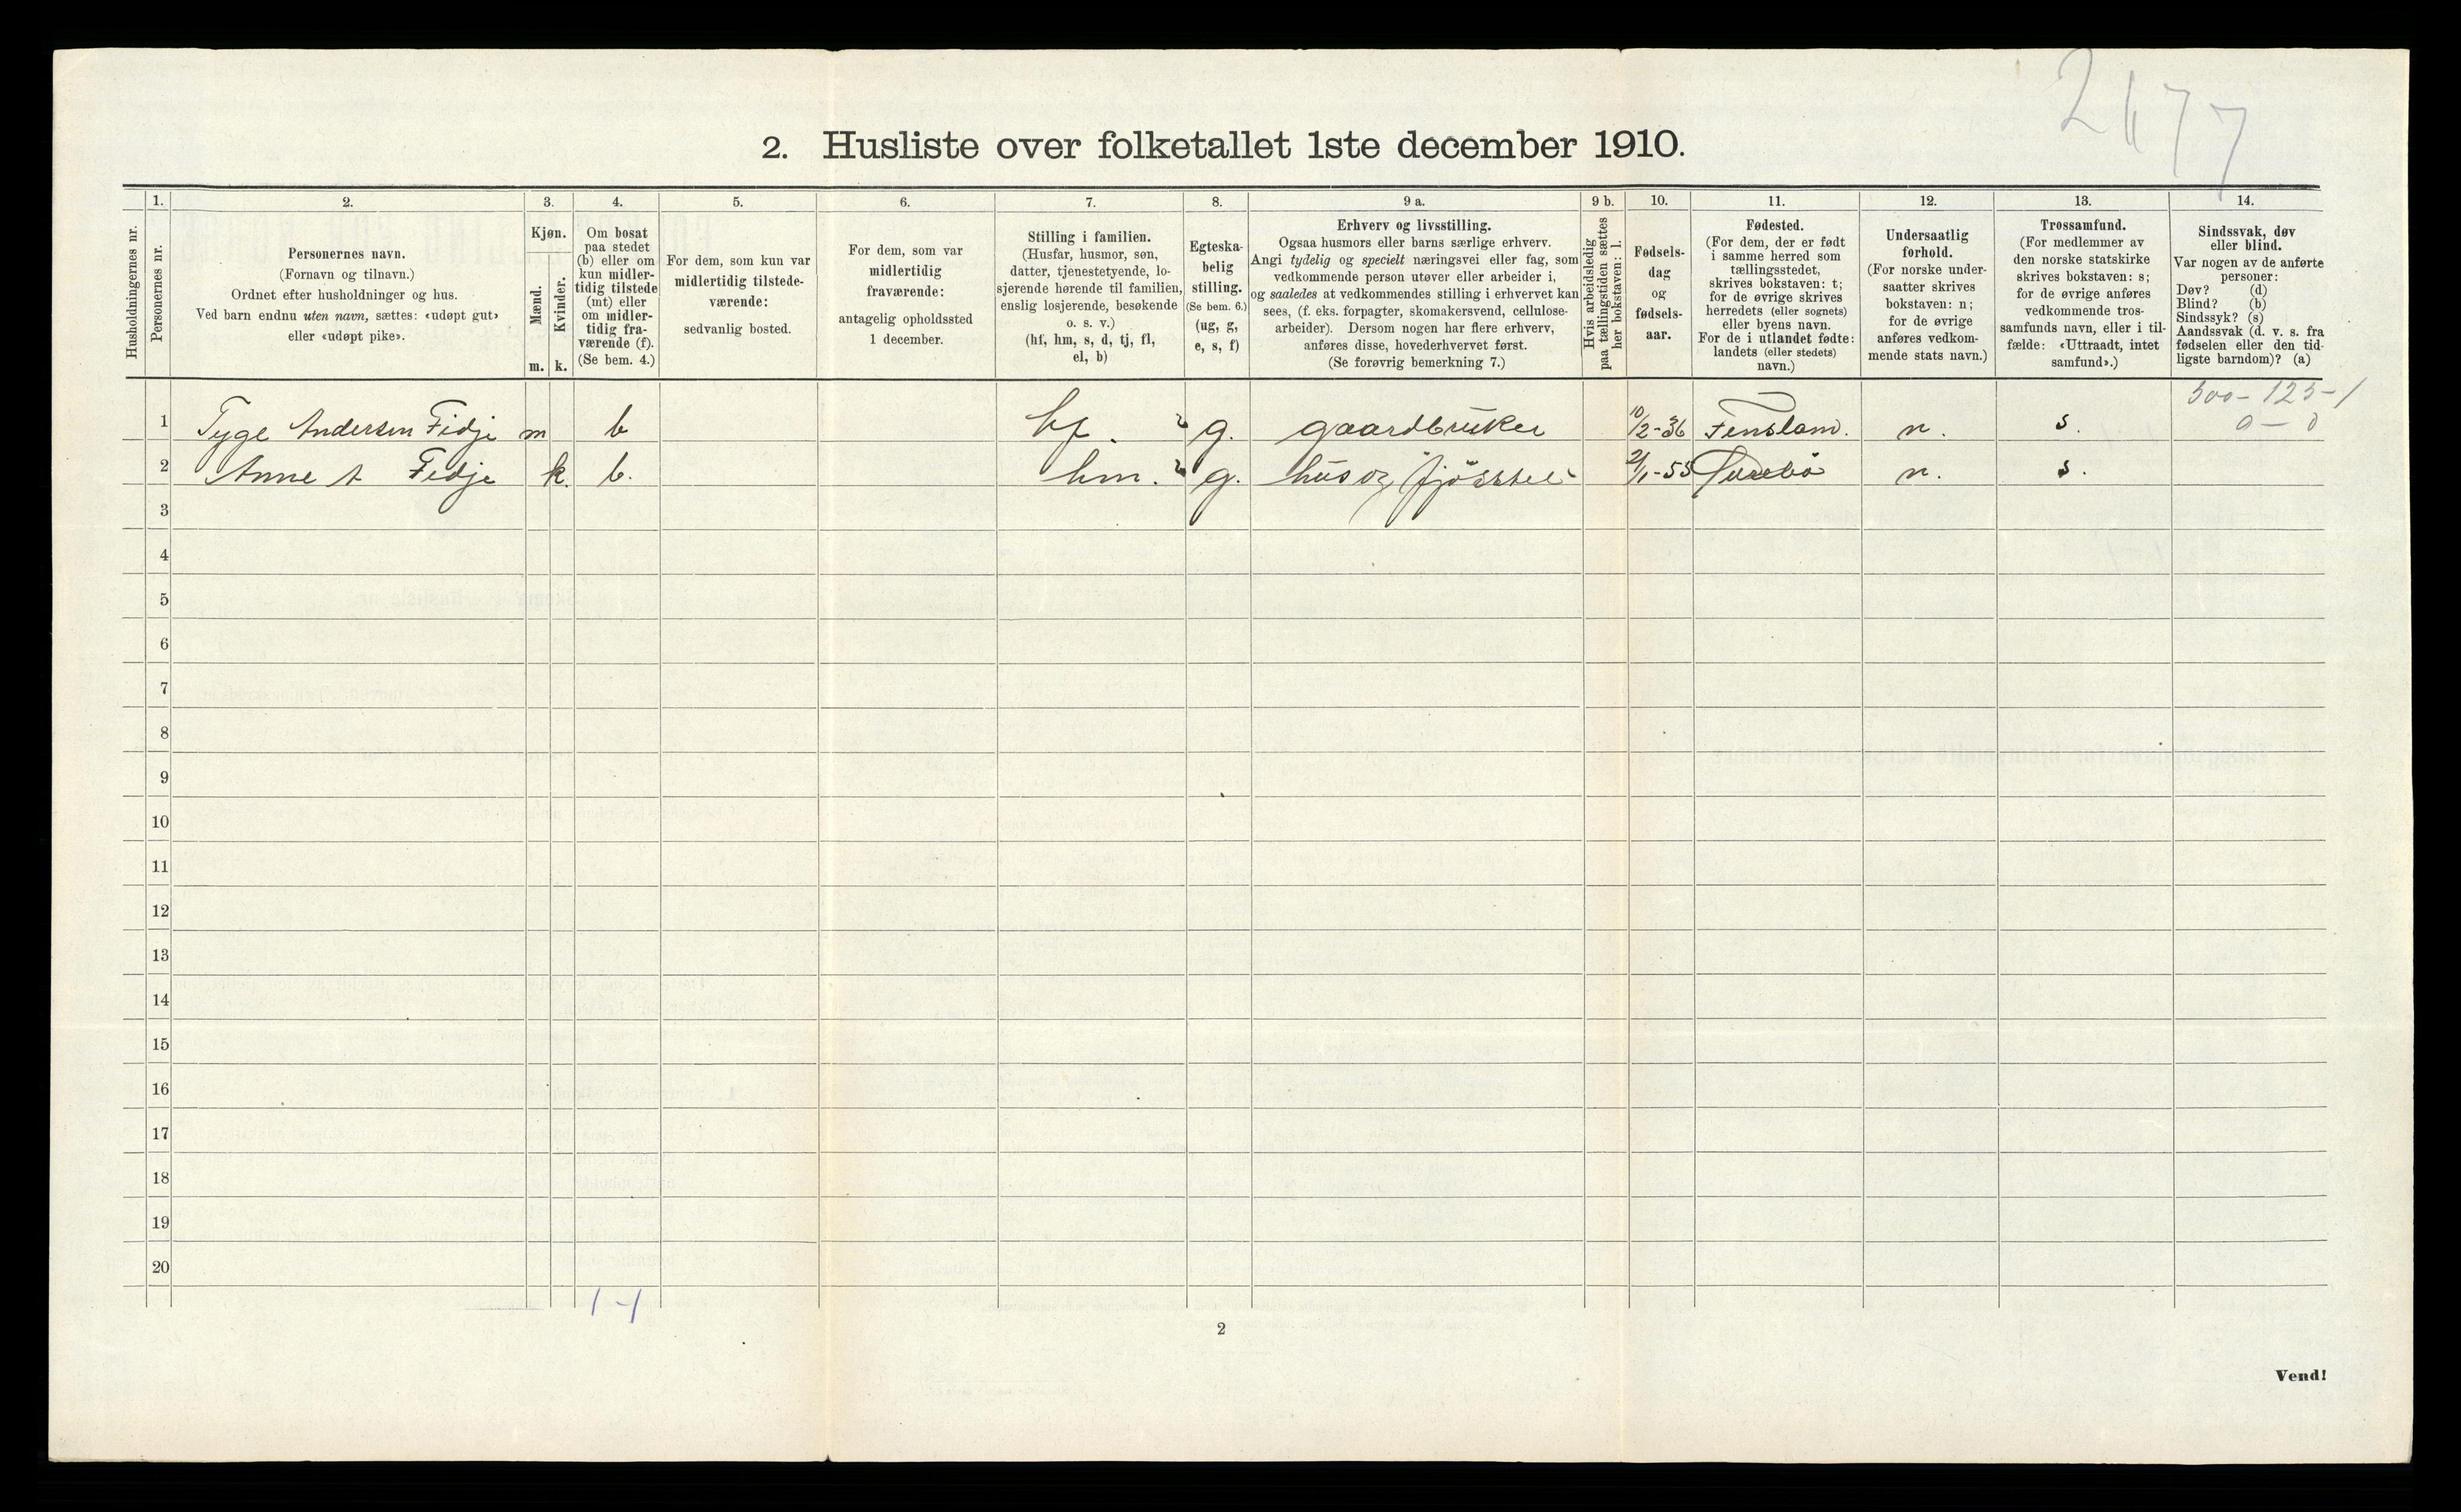 2477
2. Husliste over folketallet 1ste december 1910.
1. 2. 3. 4. 5. 6. 7. 8. 9 a. 9 b. 10. 11. 12. 13. 14.
Husholdningernes nr.
Personernes nr.
Personernes navn.
(Fornavn og tilnavn.)
Ordnet efter husholdninger og hus.
Ved barn endnu uten navn, sættes: «udøpt gut»
eller «udøpt pike».
Kjøn.
Mænd.
Kvinder.
m. k.
Om bosat
paa stedet
(b) eller om
kun midler-
tidig tilstede
(mt) eller
om midler-
tidig fra-
værende (f).
(Se bem. 4.)
For dem, som kun var
midlertidig tilstede-
værende:
sedvanlig bosted.
For dem, som var
midlertidig
fraværende:
antagelig opholdssted
1 december.
Stilling i familien.
(Husfar, husmor, søn,
datter, tjenestetyende, lo-
sjerende hørende til familien,
enslig losjerende, besøkende
o. s. v.)
(hf, hm, s, d, tj, fl,
el, b)
Egteska-
belig
stilling.
(Se bem. 6.)
(ug, g,
e, s, f)
Erhverv og livsstilling.
Ogsaa husmors eller barns særlige erhverv.
Angi tydelig og specielt næringsvei eller fag, som
vedkommende person utøver eller arbeider i,
og saaledes at vedkommendes stilling i erhvervet kan
sees, (f. eks. forpagter, skomakersvend, cellulose-
arbeider). Dersom nogen har flere erhverv,
anføres disse, hovederhvervet først.
(Se forøvrig bemerkning 7.)
Hvis arbeidsledig
paa tællingstiden sættes
her bokstaven: l.
Fødsels-
dag
og
fødsels-
aar.
Fødested.
(For dem, der er født
i samme herred som
tællingsstedet,
skrives bokstaven: t;
for de øvrige skrives
herredets (eller sognets)
eller byens navn.
For de i utlandet fødte:
landets (eller stedets)
navn.)
Undersaatlig
forhold.
(For norske under-
saatter skrives
bokstaven: n;
for de øvrige
anføres vedkom-
mende stats navn.)
Trossamfund.
(For medlemmer av
den norske statskirke
skrives bokstaven: s;
for de øvrige anføres
vedkommende tros-
samfunds navn, eller i til-
fælde: «Uttraadt, intet
samfund».)
Sindssvak, døv
eller blind.
Var nogen av de anførte
personer:
Døv? (d)
Blind? (b)
Sindssyk? (s)
Aandssvak (d. v. s. fra
fødselen eller den tid-
ligste barndom)? (a)
500 - 125 - 1
0 - 0
1 Tyge Andersen Fidje m b hf. g. gaardbruker 10/2-36 Fenslam. n. s.
2 Anne A Fidje k. b. hm. g. hus og fjösstel 2/1-55 n. s.
3
4
5
6
7
8
9
10
11
12
13
14
15
16
17
18
19
20
1-1
2
Vend!